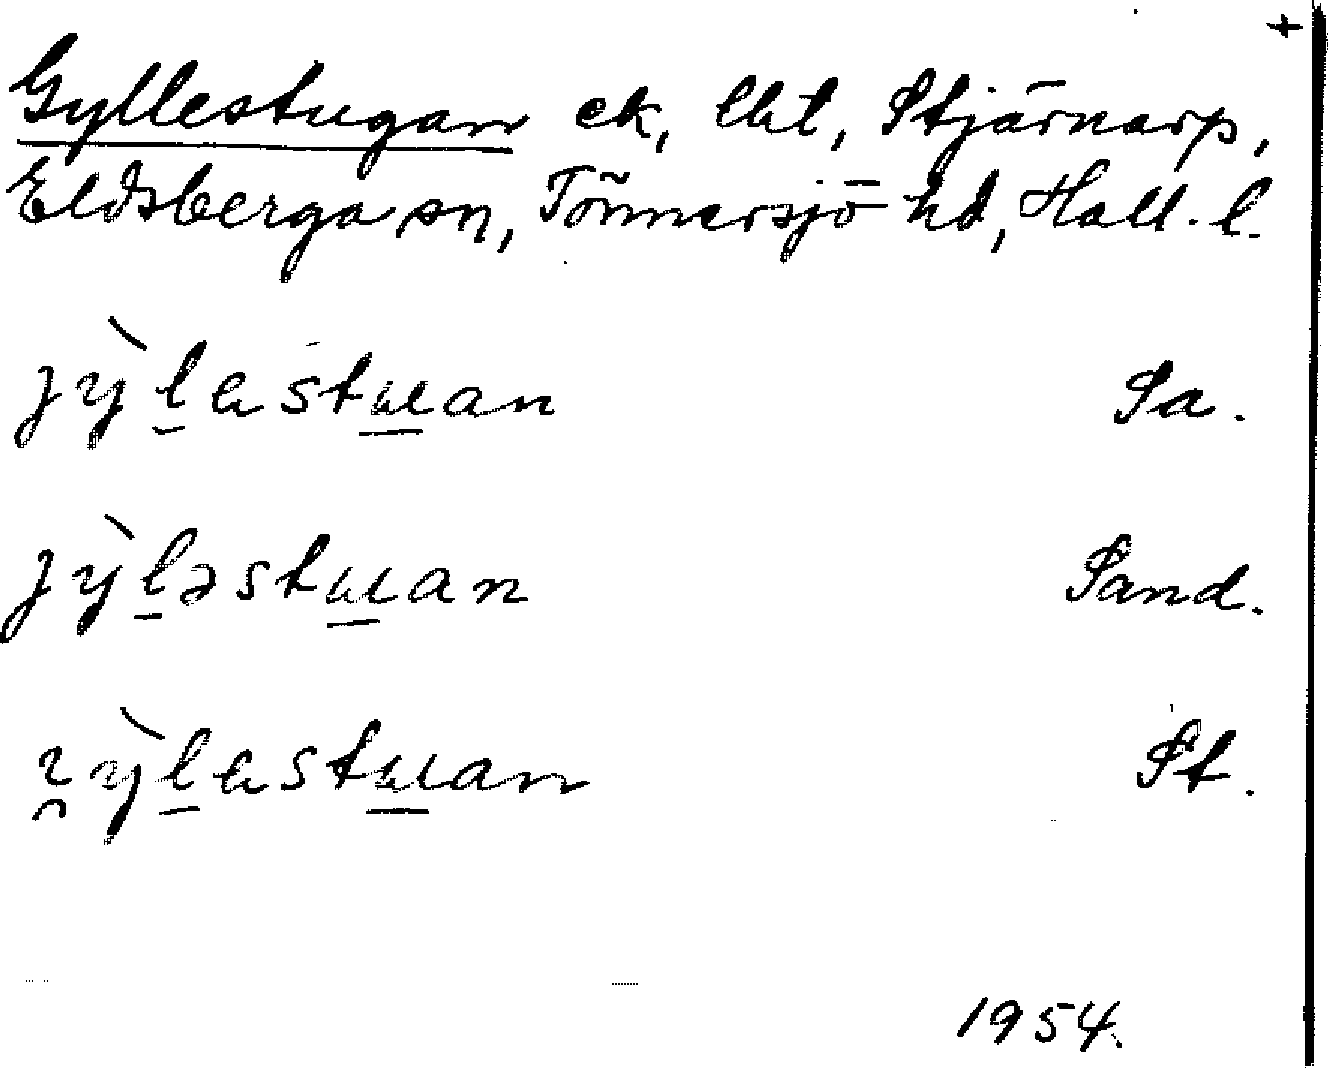 +
Gyllestugan ek, lht, Stjärnarp,
Eldsberga sn, Tönnersjö hd, Hall. l.
jỳlastuan Sa.
jỳləstuan Sand.
ỳlastuan St.
1954.